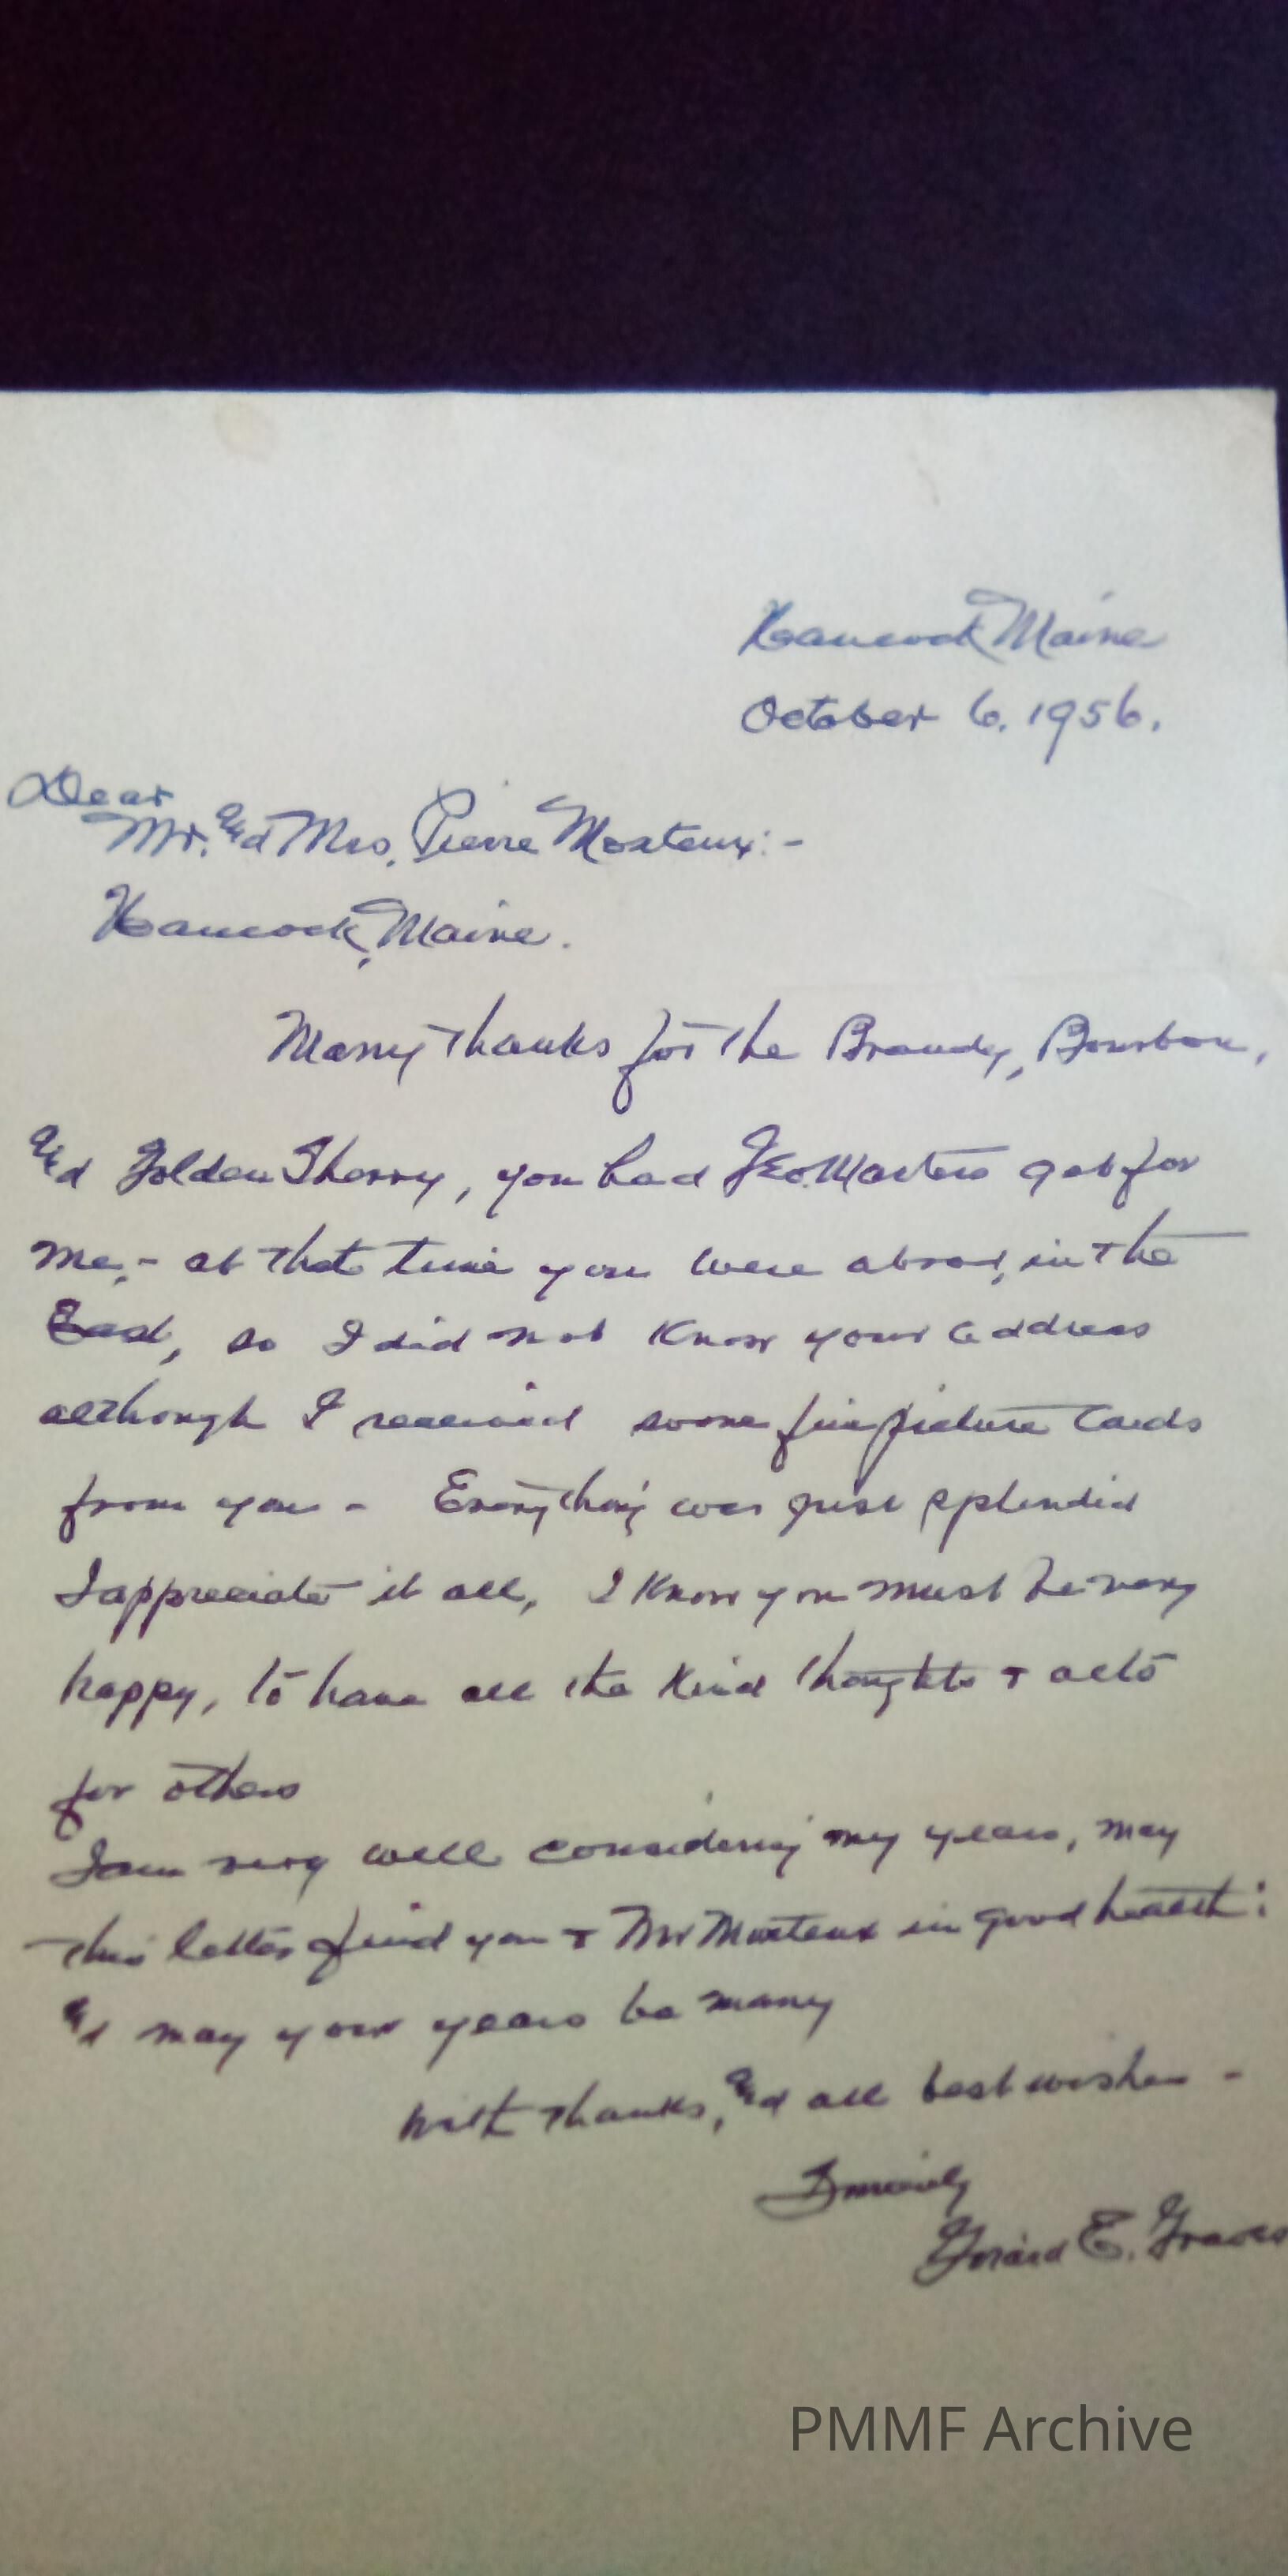 Hancock Maine
October 6, 1956.
Dear
Mr. and Mrs. Pierre Monteux:-
Hancock, Maine.
Many thanks for the Brandy, Bourbon,
and Golden Sherry, you had Geo. Martin get for
me,- at that time you were abroad, in the
East, so I did not know your address
although I received some fine picture cards
from you - Everything was just splendid
I appreciate it all, I know you must be very
happy, to have all the kind thoughts + acts
for others
I am very well considering my years, may
this letter find you + Mr Monteux in good health;
and may your years be many
With thanks, and all best wishes -
Sincerely
E. Graves
PMMF Archive